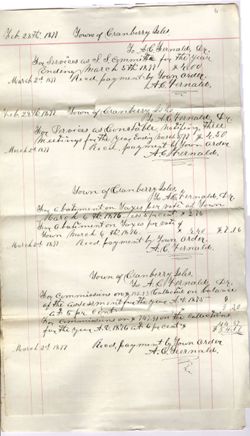 Feb. 28th, 1877 Town of Cranberry Isles
To A.C. Fernald, Dr.
For Services as S.S. Committee for the Year
Ending March 5th 1877 $ 4.00
March 2nd 1877 Recd. payment by Town Order
A.C. Fernald.
Feb. 28th 1877 Town of Cranberry Isles
To A.C. Fernald, Dr.
For Services as Constable Notifying Three
Meetings for the Year Ending 1877 $ 4.50
March 2nd 1877 Recd. payment by Town Order
A.C. Fernald.
Town of Cranberry Isles
To A.C. Fernald, Dr.
For abatement on Taxes per vote of Town
March 6th 1876
For abatement on Taxes per vote of
Town March 6th 1876
March 2nd 1877 Recd. payment by Town Order
A.C. Fernald.
Town of Cranberry Isles
To A.C. Fernald, Dr.
For Commissions on collected on balance
of the assessment for the year A.D. 1875
at 6 per cent
For Commissions on the collections
for the year A.D. 1876 at 6 per cent
March 2nd 1877 Recd. payment by Town Order
A.C. Fernald.